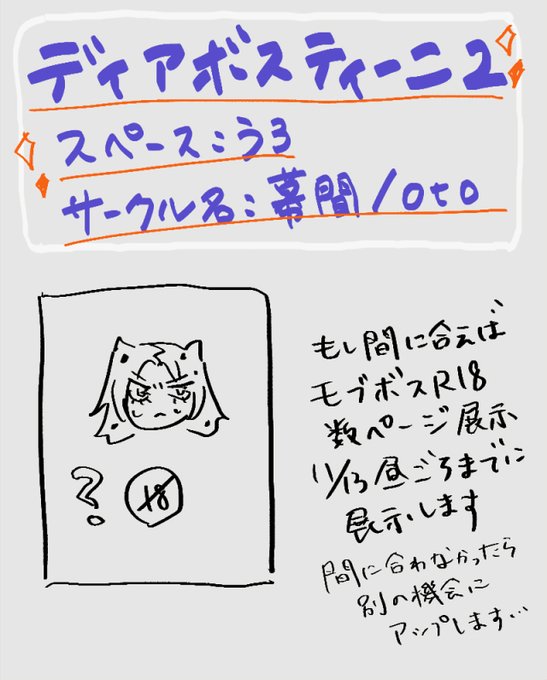 ディアボスティーニ2
スペース:う3
サークル名:幕間/oto
もし間に合えば
モブボスR18
数ページ展示
11/13昼ごろまでに
展示します
間に合わなかったら
別の機会に
アップします…
?
18